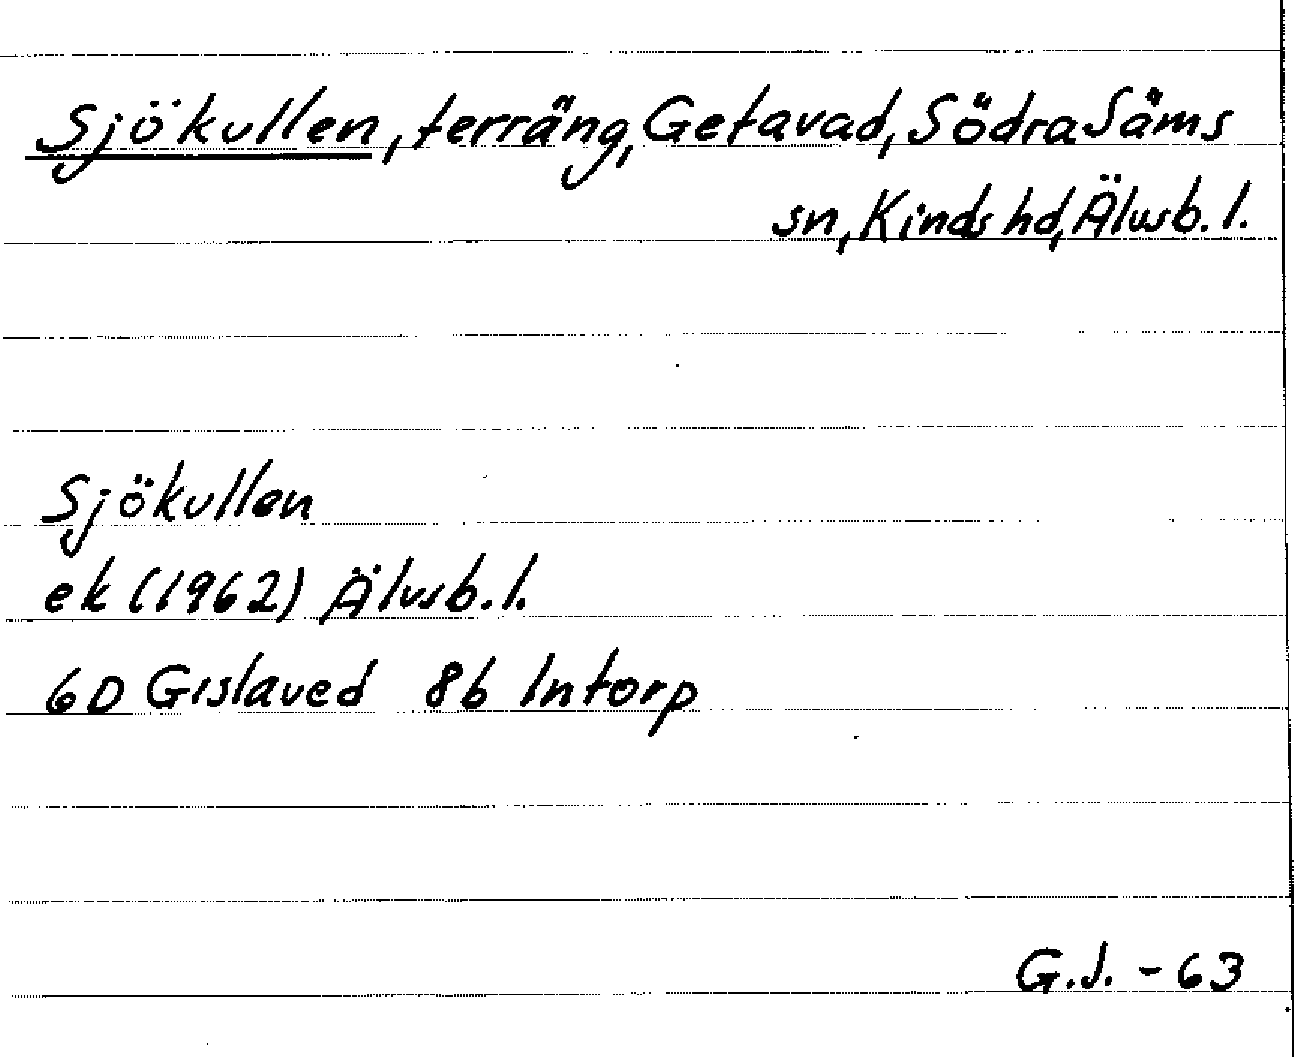 Sjökullen, terräng, Getavad, Södra Såms
sn, Kinds hd, Älvsb. l.
Sjökullen
ek (1962) Älvsb. l.
6D Gislaved 8b Intorp
G.J. - 63